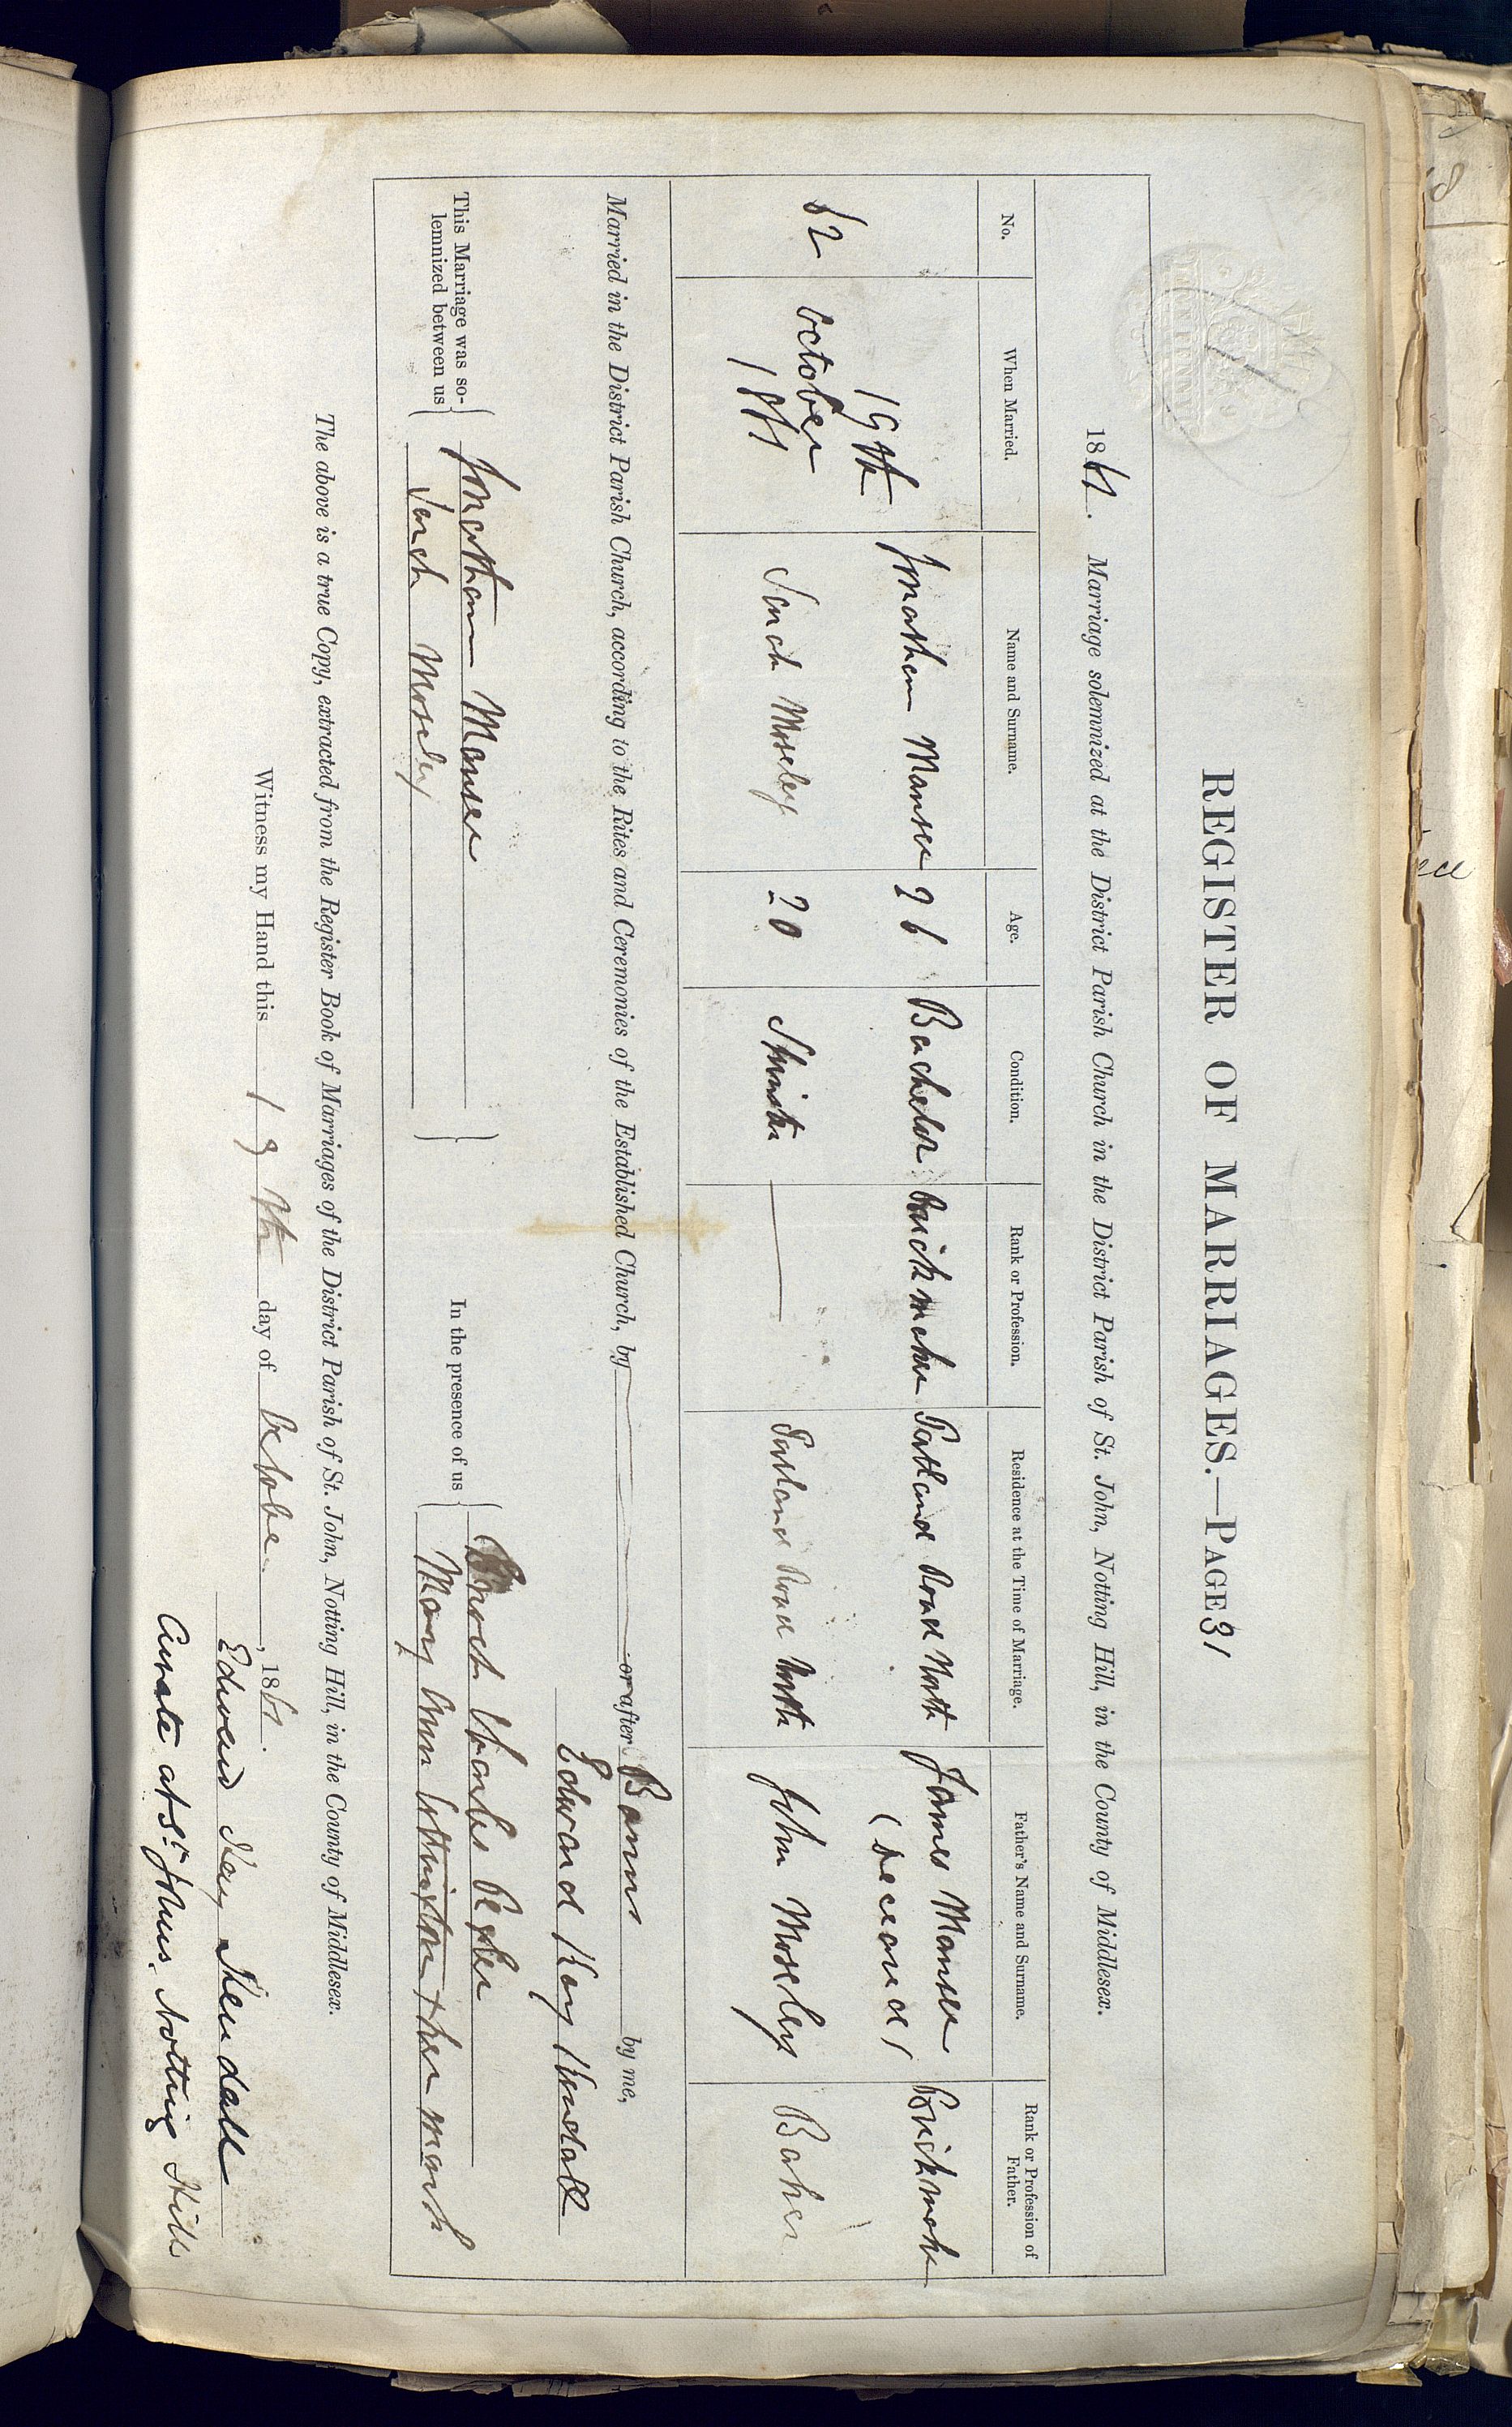 REGISTER OF MARRIAGES.—PAGE 31
1861. Marriage solemnized at the District Parish Church in the District Parish of St. John, Notting Hill, in the County of Middlesex.
No. When Married. Name and Surname. Age. Condition. Rank or Profession. Residence at the Time of Marriage. Father's Name and Surname. Rank or Profession of Father.
19th Jonathan Manser 26 Bachelor Brickmaker Portland Road North James Manser Brickmaker
62 October (Deceased)
1861 Sarah Moseley 20 Spinster — Portland Road North John Moseley Baker
Married in the District Parish Church, according to the Rites and Ceremonies of the Established Church, by or after Banns by me,
Edward Kay Kendall
This Marriage was so-
lemnized between us
Jonathan Manser
Sarah Mosely
In the presence of us
Enoch Charles
Mary Ann + her mark
The above is a true Copy, extracted from the Register Book of Marriages of the District Parish of St. John, Notting Hill, in the County of Middlesex.
Witness my Hand this 19th day of October, 1861.
Edward Kay Kendall
Curate at St. Johns, Notting Hill